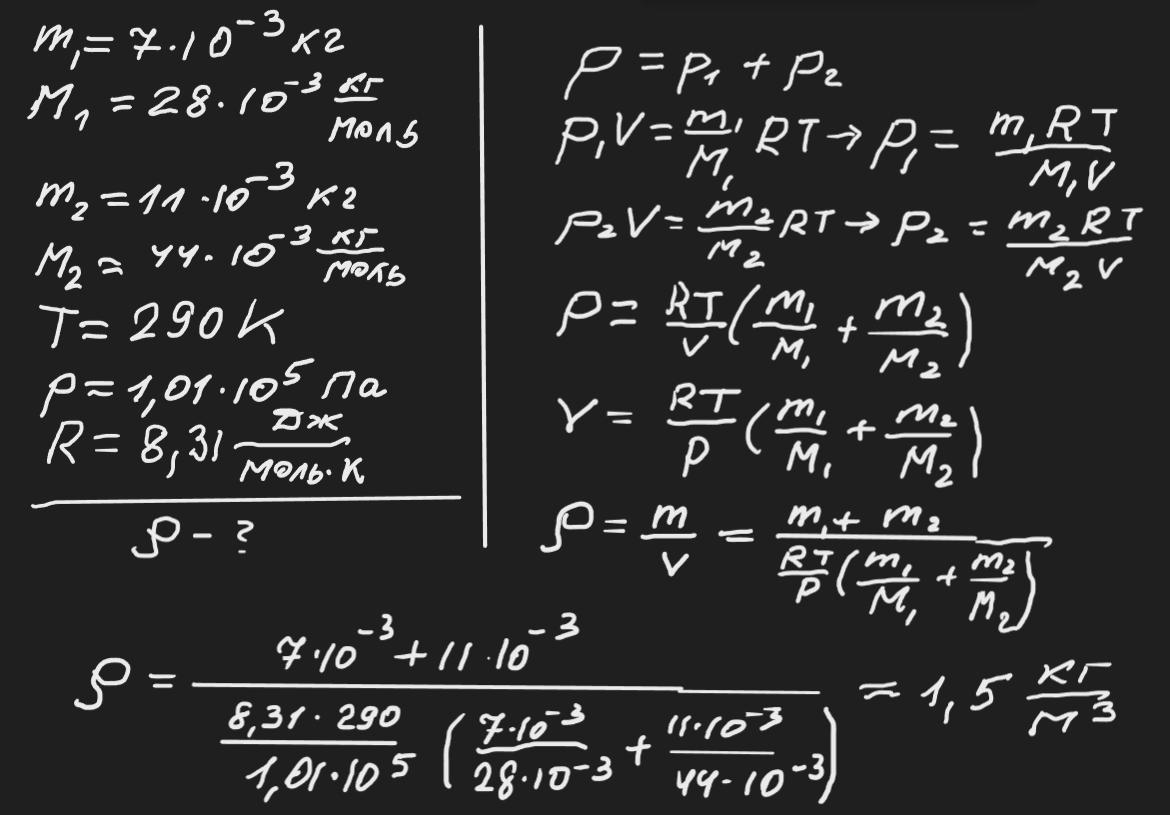 m₁ = 7·10⁻³ кг
M₁ = 28·10⁻³ кг/моль
m₂ = 11·10⁻³ кг
M₂ = 44·10⁻³ кг/моль
T = 290 K
p = 1,01·10⁵ Па
R = 8,31 Дж/(моль·К)
ρ - ?
p = p₁ + p₂
p₁V = m₁/M₁ RT → p₁ = m₁RT/(M₁V)
p₂V = m₂/M₂ RT → p₂ = m₂RT/(M₂V)
p = RT/V (m₁/M₁ + m₂/M₂)
V = RT/p (m₁/M₁ + m₂/M₂)
ρ = m/V = (m₁ + m₂)/(RT/p (m₁/M₁ + m₂/M₂))
ρ = (7·10⁻³ + 11·10⁻³)/(8,31·290/(1,01·10⁵) (7·10⁻³/(28·10⁻³) + 11·10⁻³/(44·10⁻³))) = 1,5 кг/м³